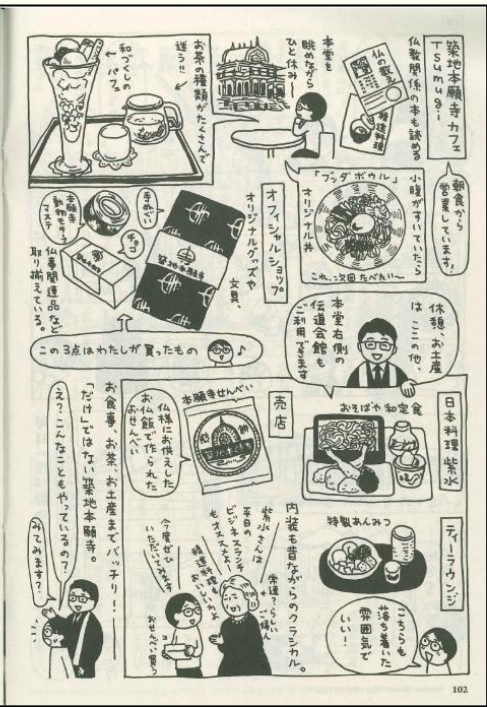 築地本願寺カフェ
Tsumugi
朝食から
営業しています!
仏教関係の本も読める
仏の教え
精進料理
本堂を
眺めながら
ひと休み〜
お茶の種類がたくさんで
迷う!!
和づくしの
パフェ
小腹がすいていたら
「ブッダボウル」
オリジナル丼
これ、次回たべたい〜
オフィシャルショップ
オリジナルグッズや
文具、
手ぬぐい
築地本願寺
チョコ
本願寺
動物モチーフ
マステ
仏事関連品など
取り揃えている。
この3点はわたしが買ったもの
休憩、お土産
は ここの他、
本堂右側の
伝道会館も
ご利用できます
日本料理 紫水
おそばや和定食
売店
本願寺せんべい
仏様にお供えした
お仏飯で作られた
おせんべい
ティーラウンジ
特製あんみつ
こちらも
落ち着いた
雰囲気で
いい!
内装も昔ながらのクラシカル。
常連?らしいご婦人
紫水さんは
平日の
ビジネスランチ
もオススメよ、
精進料理も
おいしいわよ
今度ぜひ
いただいてみます
おせんべい買う
お食事、お茶、お土産までバッチリ!
「だけ」ではない築地本願寺。
え?こんなこともやっているの?
みてみます?
102